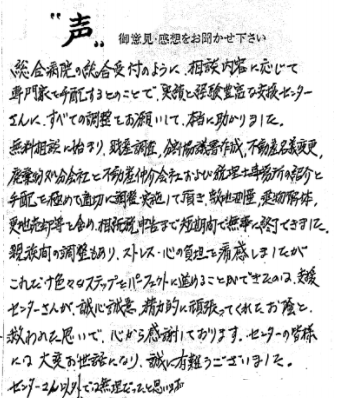 "声" 御意見・感想をお聞かせ下さい
総合病院の総合受付のように、相談内容に応じて
専門家を手配するとのことで、実績と経験豊富な支援センター
さんに、すべての調整をお願いして、本当に助かりました。
無料相談に始まり、財産調査、分割協議書作成、不動産名義変更、
廃棄物処分会社と不動産仲介会社および税理士事務所の紹介と
手配を極めて適切に調整実施して頂き、敷地測量、建物解体、
更地売却等も含め、相続税申告まで短期間で無事に終了できました。
親族間の調整もあり、ストレス・心の負担を痛感しましたが
これだけ色々なステップをパーフェクトに進めることができたのは、支援
センターさんが、誠心誠意、精力的に頑張ってくれたお陰と、
救われた思いで、心から感謝しております。センターの皆様
には大変お世話になり、誠に有難うございました。
センターさん以外では無理だったと思います